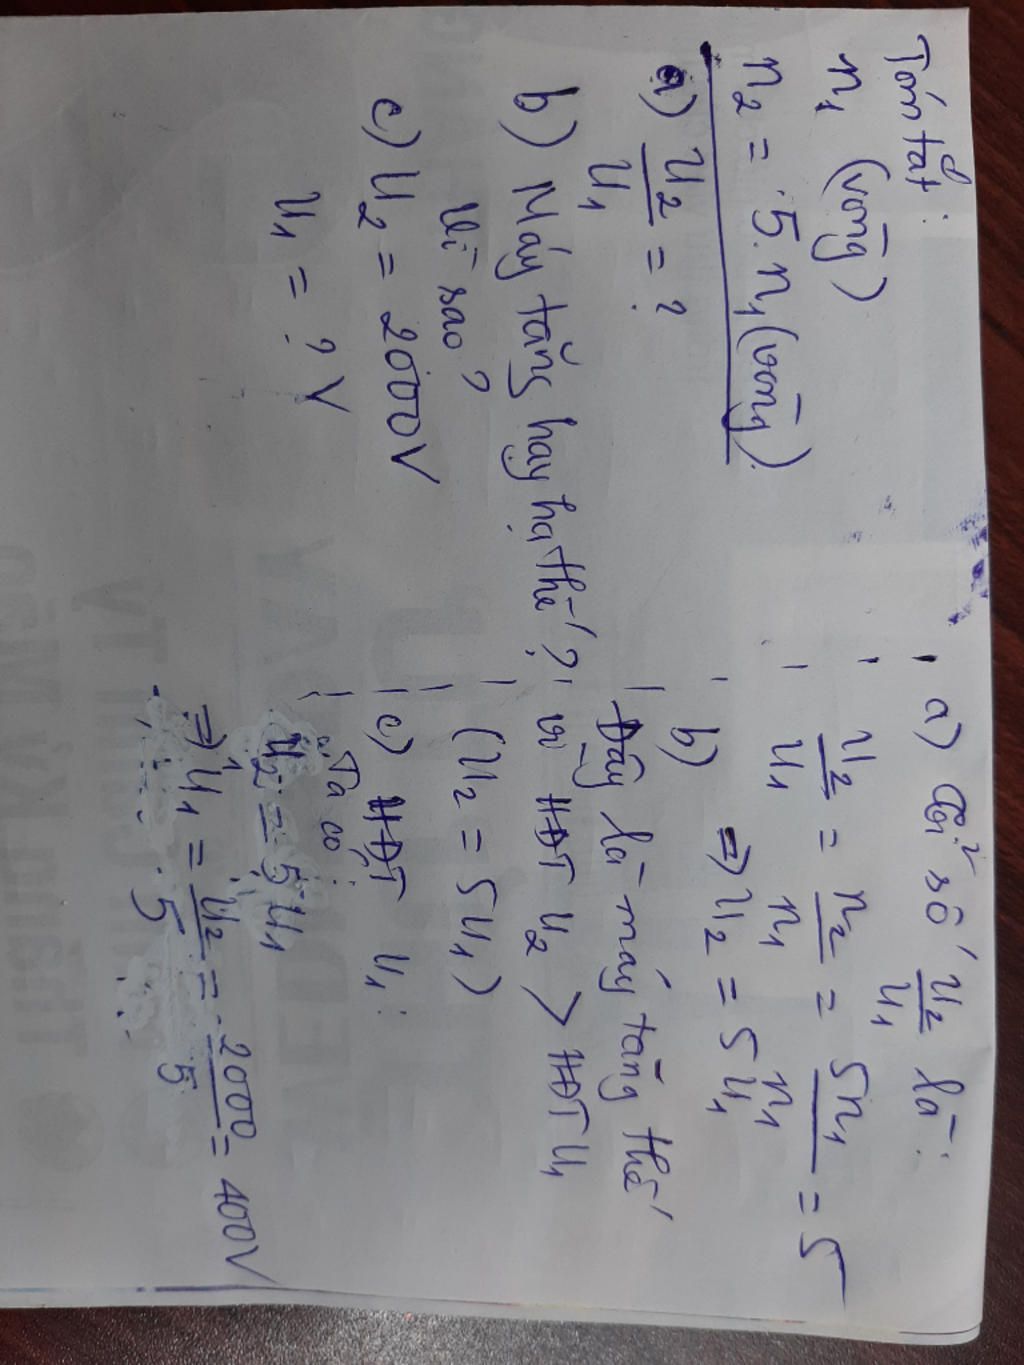 Tóm tắt:
n1 (vòng)
n2 = 5.n1 (vòng).
a) U2/U1 = ?
b) Máy tăng hay hạ thế?
Vì sao?
c) U2 = 2000V
U1 = ? V
a) Tỉ số U2/U1 là:
U2/U1 = n2/n1 = 5n1/n1 = 5
⇒ U2 = 5U1
b)
Đây là máy tăng thế
vì HĐT U2 > HĐT U1
(U2 = 5U1)
c) HĐT U1:
Ta có:
U2 = 5U1
⇒ U1 = U2/5 = 2000/5 = 400V